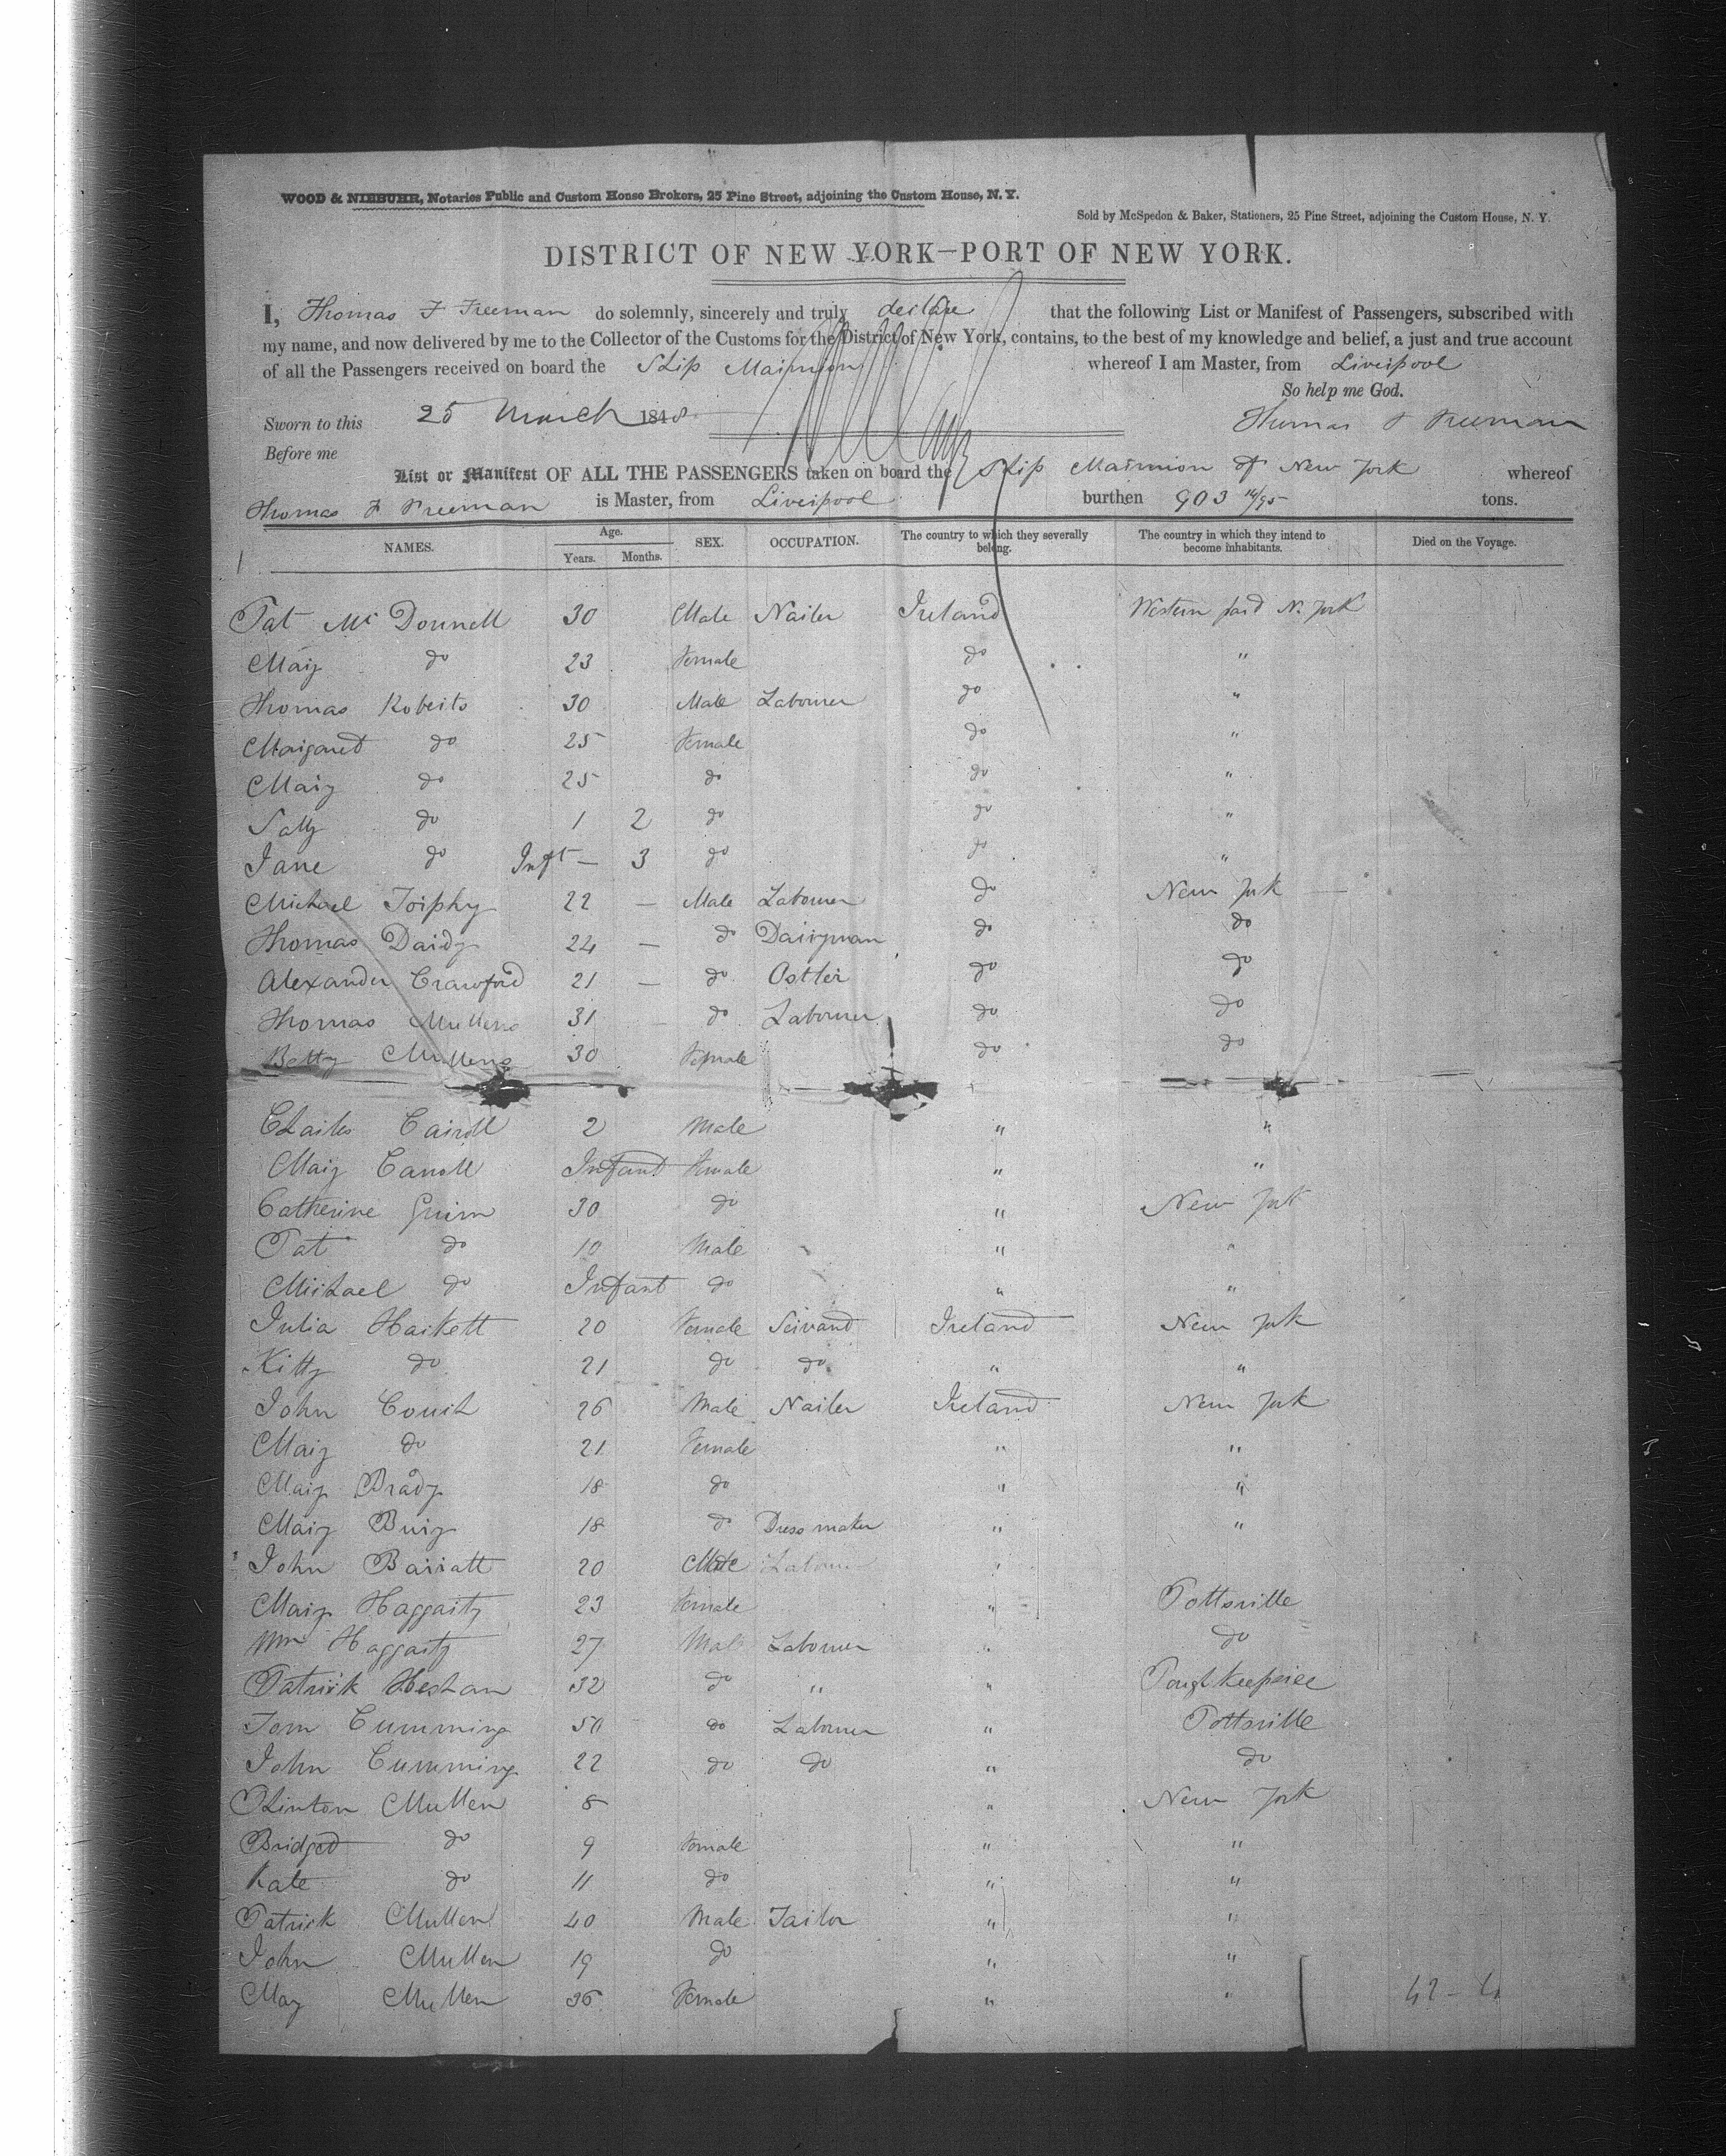 WOOD & NIEBUHR, Notaries Public and Custom House Brokers, 25 Pine Street, adjoining the Custom House, N. Y.
Sold by McSpedon & Baker, Stationers, 25 Pine Street, adjoining the Custom House, N. Y.
DISTRICT OF NEW YORK—PORT OF NEW YORK.
I, Thomas F Freeman do solemnly, sincerely and truly declare that the following List or Manifest of Passengers, subscribed with
my name, and now delivered by me to the Collector of the Customs for the District of New York, contains, to the best of my knowledge and belief, a just and true account
of all the Passengers received on board the Ship Marmion whereof I am Master, from Liverpool
So help me God.
Sworn to this 25 March 1848 Thomas F Freeman
Before me
List or Manifest OF ALL THE PASSENGERS taken on board the Ship Marmion of New York whereof
Thomas F Freeman is Master, from Liverpool burthen 903 14/95 tons.
NAMES. Age. Years. Months. SEX. OCCUPATION. The country to which they severally belong. The country in which they intend to become inhabitants. Died on the Voyage.
1
Pat McDonnell 30 Male Nailer Ireland Western N. York
Mary do 23 Female do "
Thomas Roberts 30 Male Labourer do "
Margaret do 25 Female do "
Mary do 25 do do "
Sally do 1 2 do do "
Jane do Inft — 3 do do "
Michael 22 — Male Labourer do New York
Thomas Dardy 24 — do Dairyman do do
Alexander Crawford 21 — do Ostler do do
Thomas Mullens 31 — do Labourer do do
Betty Mullens 30 Female do do
Charles Carroll 2 Male " "
Mary Carroll Infant Female " "
Catherine 30 do " New York
Pat do 10 Male " "
Michael do Infant do " "
Julia Hackett 20 Female Servand Ireland New York
Kitty do 21 do do " "
John 26 Male Nailer Ireland New York
Mary do 21 Female " "
Mary Brady 18 do " "
Mary 18 do Dress maker " "
John Barratt 20 Male Labourer "
Mary Haggarty 23 Female " Pottsville
Wm Haggarty 27 Male Labourer " do
Patrick Heshan 32 do " " Poughkeepsiee
Tom Cumming 50 do Labourer " Pottsville
John Cumming 22 do do " do
Mullen 8 " New York
Bridged do 9 Female " "
Kate do 11 do " "
Patrick Mullen 40 Male Tailor " "
John Mullen 19 do " "
May Mullen 36 Female " "